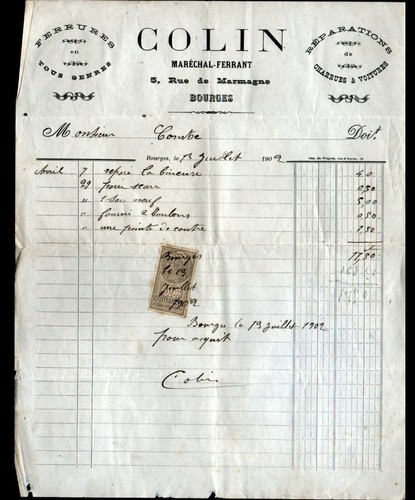 FERRURES
en
TOUS GENRES
COLIN
MARÉCHAL-FERRANT
5, Rue de Marmagne
BOURGES
RÉPARATIONS
de
CHARRUES & VOITURES
Monsieur Combe Doit
Bourges, le 13 Juillet 1902
Avril 7 la bineuse
22 pour 0,50
" 1 soc neuf 5,00
" fourni 2 boulons 0,50
" une pointe de coutre 1,50
11,50
Bourges
le 13
Juillet
1902
Bourges le 13 Juillet 1902
pour acquit
Colin